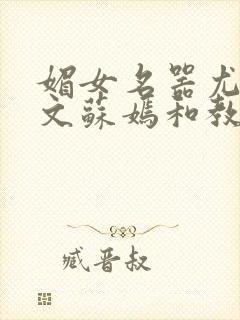 媚女名器尤
文蘇媽和教
臧晋叔